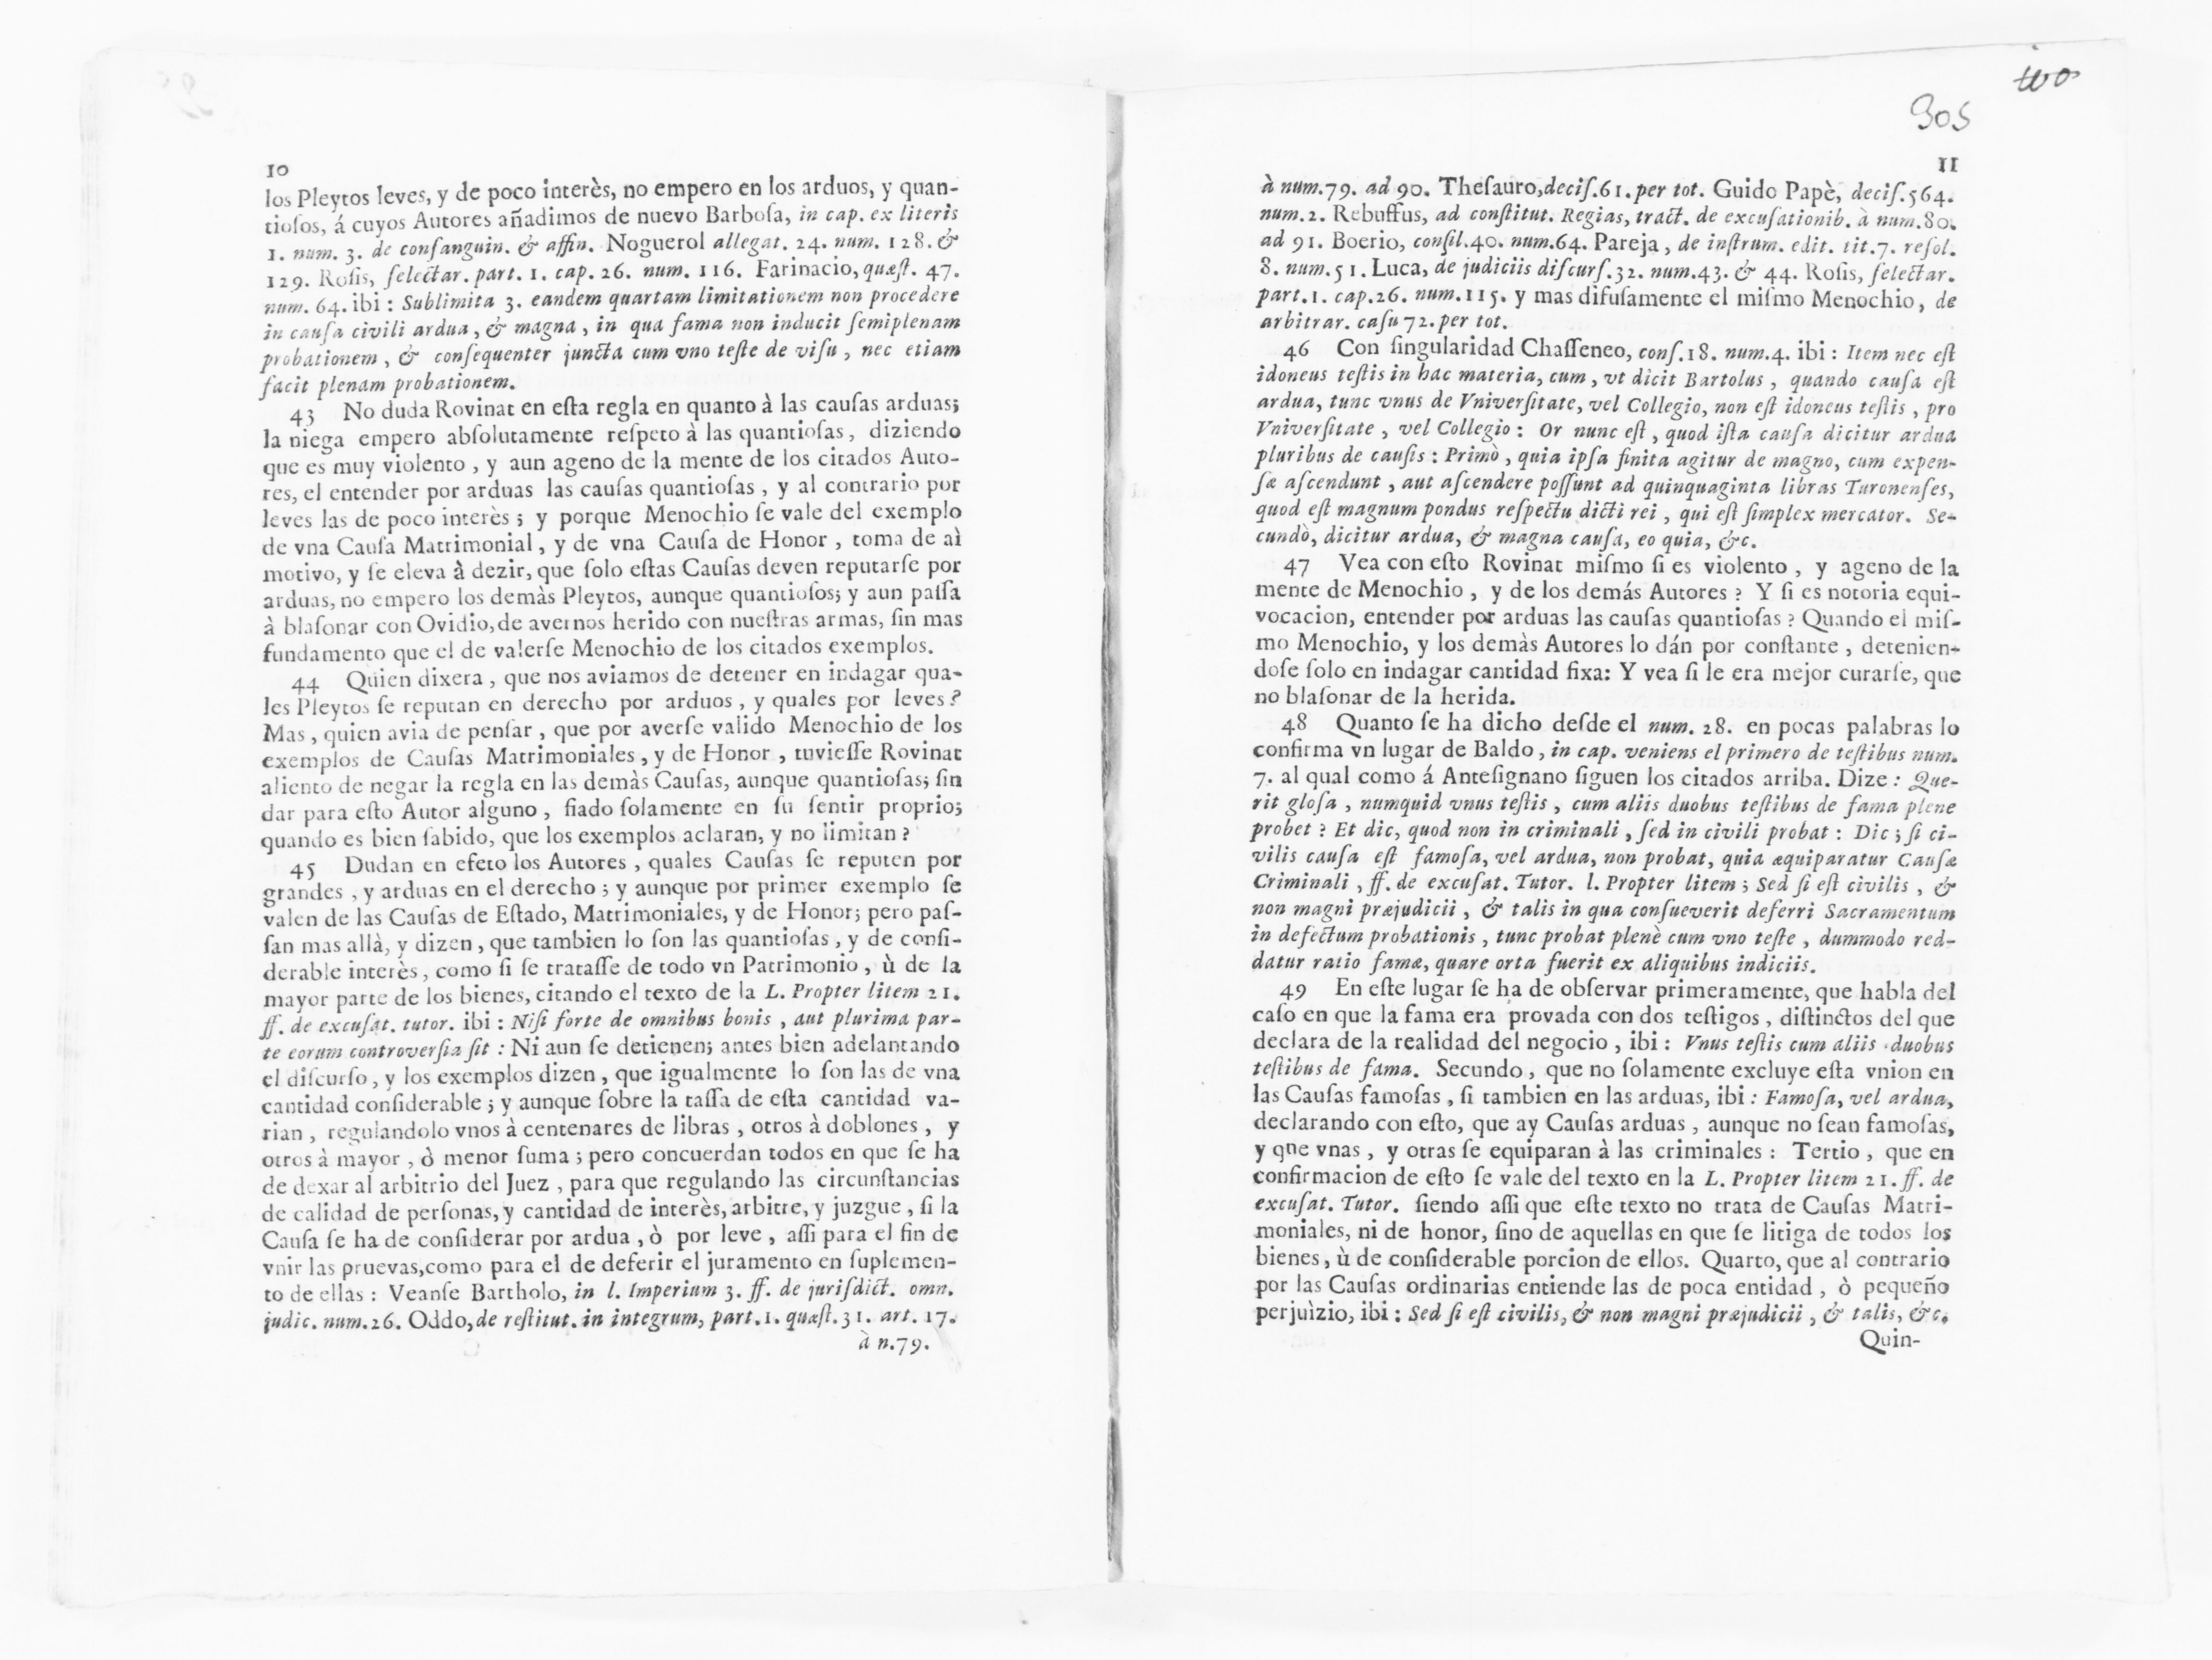 10
los Pleytos leves, y de poco interès, no empero en los arduos, y quan-
tiosos, á cuyos Autores añadimos de nuevo Barbosa, in cap. ex literis
1. num. 3. de consanguin. & affin. Noguerol allegat. 24. num. 128. &
129. Rosis, selectar. part. 1. cap. 26. num. 116. Farinacio, quæst. 47.
num. 64. ibi : Sublimita 3. eandem quartam limitationem non procedere
in causa civili ardua, & magna, in qua fama non inducit semiplenam
probationem, & consequenter juncta cum vno teste de visu, nec etiam
facit plenam probationem.
43 No duda Rovinat en esta regla en quanto à las causas arduas;
la niega empero absolutamente respeto à las quantiosas, diziendo
que es muy violento, y aun ageno de la mente de los citados Auto-
res, el entender por arduas las causas quantiosas, y al contrario por
leves las de poco interès; y porque Menochio se vale del exemplo
de vna Causa Matrimonial, y de vna Causa de Honor, toma de aì
motivo, y se eleva à dezir, que solo estas Causas deven reputarse por
arduas, no empero los demàs Pleytos, aunque quantiosos; y aun passa
à blasonar con Ovidio, de avernos herido con nuestras armas, sin mas
fundamento que el de valerse Menochio de los citados exemplos.
44 Quien dixera, que nos aviamos de detener en indagar qua-
les Pleytos se reputan en derecho por arduos, y quales por leves?
Mas, quien avia de pensar, que por averse valido Menochio de los
exemplos de Causas Matrimoniales, y de Honor, tuviesse Rovinat
aliento de negar la regla en las demàs Causas, aunque quantiosas; sin
dar para esto Autor alguno, fiado solamente en su sentir proprio;
quando es bien sabido, que los exemplos aclaran, y no limitan?
45 Dudan en efeto los Autores, quales Causas se reputen por
grandes, y arduas en el derecho; y aunque por primer exemplo se
valen de las Causas de Estado, Matrimoniales, y de Honor; pero pas-
san mas allà, y dizen, que tambien lo son las quantiosas, y de consi-
derable interès, como si se tratasse de todo vn Patrimonio, ù de la
mayor parte de los bienes, citando el texto de la L. Propter litem 21.
ff. de excusat. tutor. ibi : Nisi forte de omnibus bonis, aut plurima par-
te eorum controversia sit : Ni aun se detienen; antes bien adelantando
el discurso, y los exemplos dizen, que igualmente lo son las de vna
cantidad considerable; y aunque sobre la tassa de esta cantidad va-
rian, regulandolo vnos à centenares de libras, otros à doblones, y
otros à mayor, ò menor suma; pero concuerdan todos en que se ha
de dexar al arbitrio del Juez, para que regulando las circunstancias
de calidad de personas, y cantidad de interès, arbitre, y juzgue, si la
Causa se ha de considerar por ardua, ò por leve, assi para el fin de
vnir las pruevas, como para el de deferir el juramento en suplemen-
to de ellas : Veanse Bartholo, in l. Imperium 3. ff. de jurisdict. omn.
judic. num. 26. Oddo, de restitut. in integrum, part. 1. quæst. 31. art. 17.
à n. 79.
wo
305
11
à num. 79. ad 90. Thesauro, decis. 61. per tot. Guido Papè, decis. 564.
num. 2. Rebuffus, ad constitut. Regias, tract. de excusationib. à num. 80.
ad 91. Boerio, consil. 40. num. 64. Pareja, de instrum. edit. tit. 7. resol.
8. num. 51. Luca, de judiciis discurs. 32. num. 43. & 44. Rosis, selectar.
part. 1. cap. 26. num. 115. y mas difusamente el mismo Menochio, de
arbitrar. casu 72. per tot.
46 Con singularidad Chasseneo, cons. 18. num. 4. ibi : Item nec est
idoneus testis in hac materia, cum, vt dicit Bartolus, quando causa est
ardua, tunc vnus de Vniversitate, vel Collegio, non est idoneus testis, pro
Vniversitate, vel Collegio : Or nunc est, quod ista causa dicitur ardua
pluribus de causis : Primò, quia ipsa finita agitur de magno, cum expen-
sæ ascendunt, aut ascendere possunt ad quinquaginta libras Turonenses,
quod est magnum pondus respectu dicti rei, qui est simplex mercator. Se-
cundò, dicitur ardua, & magna causa, eo quia, &c.
47 Vea con esto Rovinat mismo si es violento, y ageno de la
mente de Menochio, y de los demás Autores? Y si es notoria equi-
vocacion, entender por arduas las causas quantiosas? Quando el mis-
mo Menochio, y los demàs Autores lo dán por constante, detenien-
dose solo en indagar cantidad fixa: Y vea si le era mejor curarse, que
no blasonar de la herida.
48 Quanto se ha dicho desde el num. 28. en pocas palabras lo
confirma vn lugar de Baldo, in cap. veniens el primero de testibus num.
7. al qual como á Antesignano siguen los citados arriba. Dize : Que-
rit glosa, numquid vnus testis, cum aliis duobus testibus de fama plene
probet? Et dic, quod non in criminali, sed in civili probat : Dic; si ci-
vilis causa est famosa, vel ardua, non probat, quia æquiparatur Causæ
Criminali, ff. de excusat. Tutor. l. Propter litem; Sed si est civilis, &
non magni præjudicii, & talis in qua consueverit deferri Sacramentum
in defectum probationis, tunc probat plenè cum vno teste, dummodo red-
datur ratio famæ, quare orta fuerit ex aliquibus indiciis.
49 En este lugar se ha de observar primeramente, que habla del
caso en que la fama era provada con dos testigos, distinctos del que
declara de la realidad del negocio, ibi : Vnus testis cum aliis duobus
testibus de fama. Secundo, que no solamente excluye esta vnion en
las Causas famosas, si tambien en las arduas, ibi : Famosa, vel ardua,
declarando con esto, que ay Causas arduas, aunque no sean famosas,
y que vnas, y otras se equiparan à las criminales : Tertio, que en
confirmacion de esto se vale del texto en la L. Propter litem 21. ff. de
excusat. Tutor. siendo assi que este texto no trata de Causas Matri-
moniales, ni de honor, sino de aquellas en que se litiga de todos los
bienes, ù de considerable porcion de ellos. Quarto, que al contrario
por las Causas ordinarias entiende las de poca entidad, ò pequeño
perjuìzio, ibi : Sed si est civilis, & non magni præjudicii, & talis, &c.
Quin-